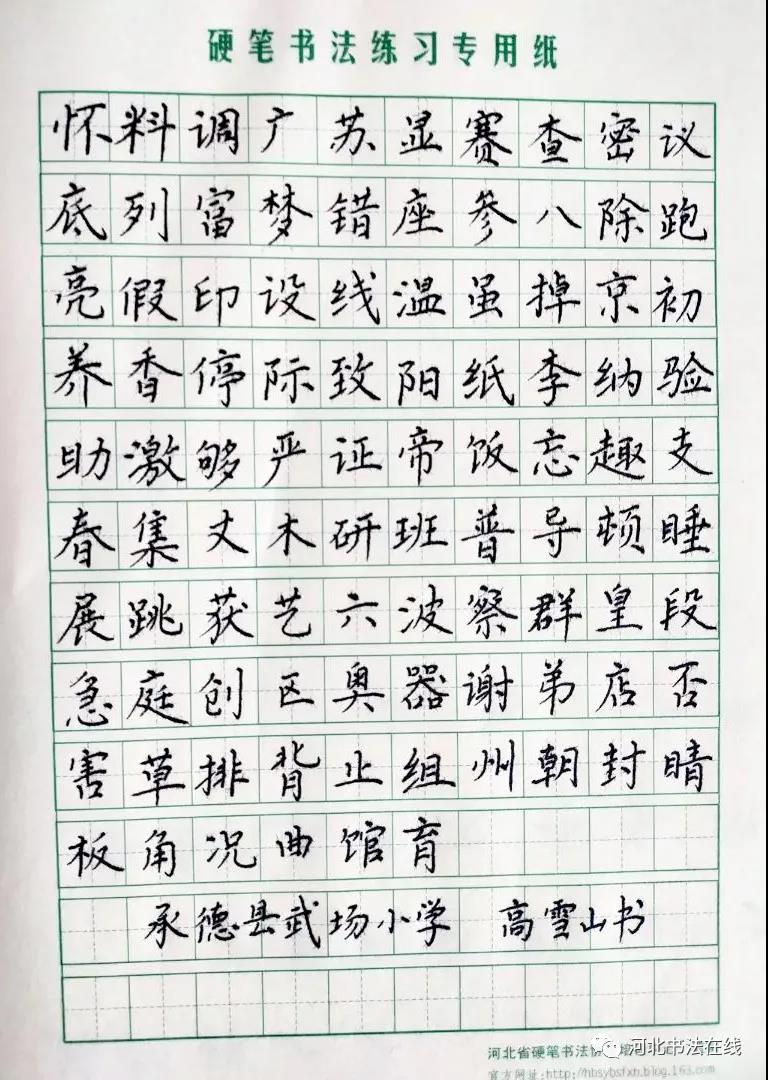 硬笔书法练习专用纸
怀料调广苏显赛查密议
底列富梦错座参八除跑
亮假印设线温虽掉京初
养香停际致阳纸李纳验
助激够严证帝饭忘趣支
春集丈木研班普导顿睡
展跳获艺六波察群皇段
急庭创区奥器谢弟店否
害草排背止组州朝封晴
板角况曲馆育
承德县武场小学 高雪山书
河北省硬笔书法
河北书法在线
官方网址:http://hbsybsfxh.blog.163.com